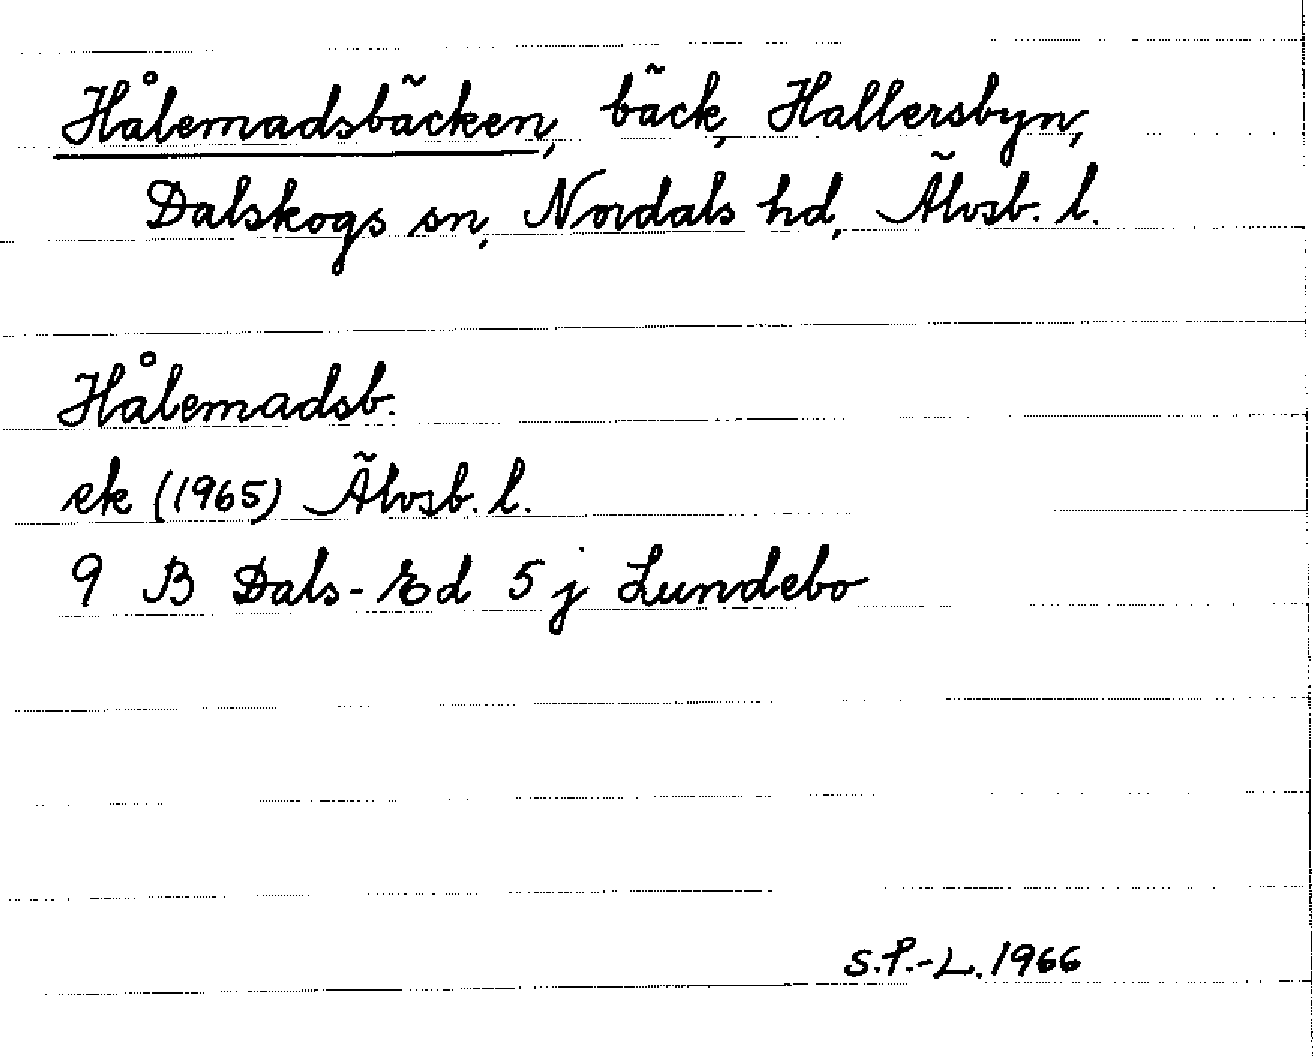 Hålemadsbäcken, bäck, Hallersbyn,
Dalskogs sn, Nordals hd, Älvsb. l.
Hålemadsb.
ek (1965) Älvsb. l.
9 B Dals-Ed 5 j Lundebo
S.P.-L. 1966